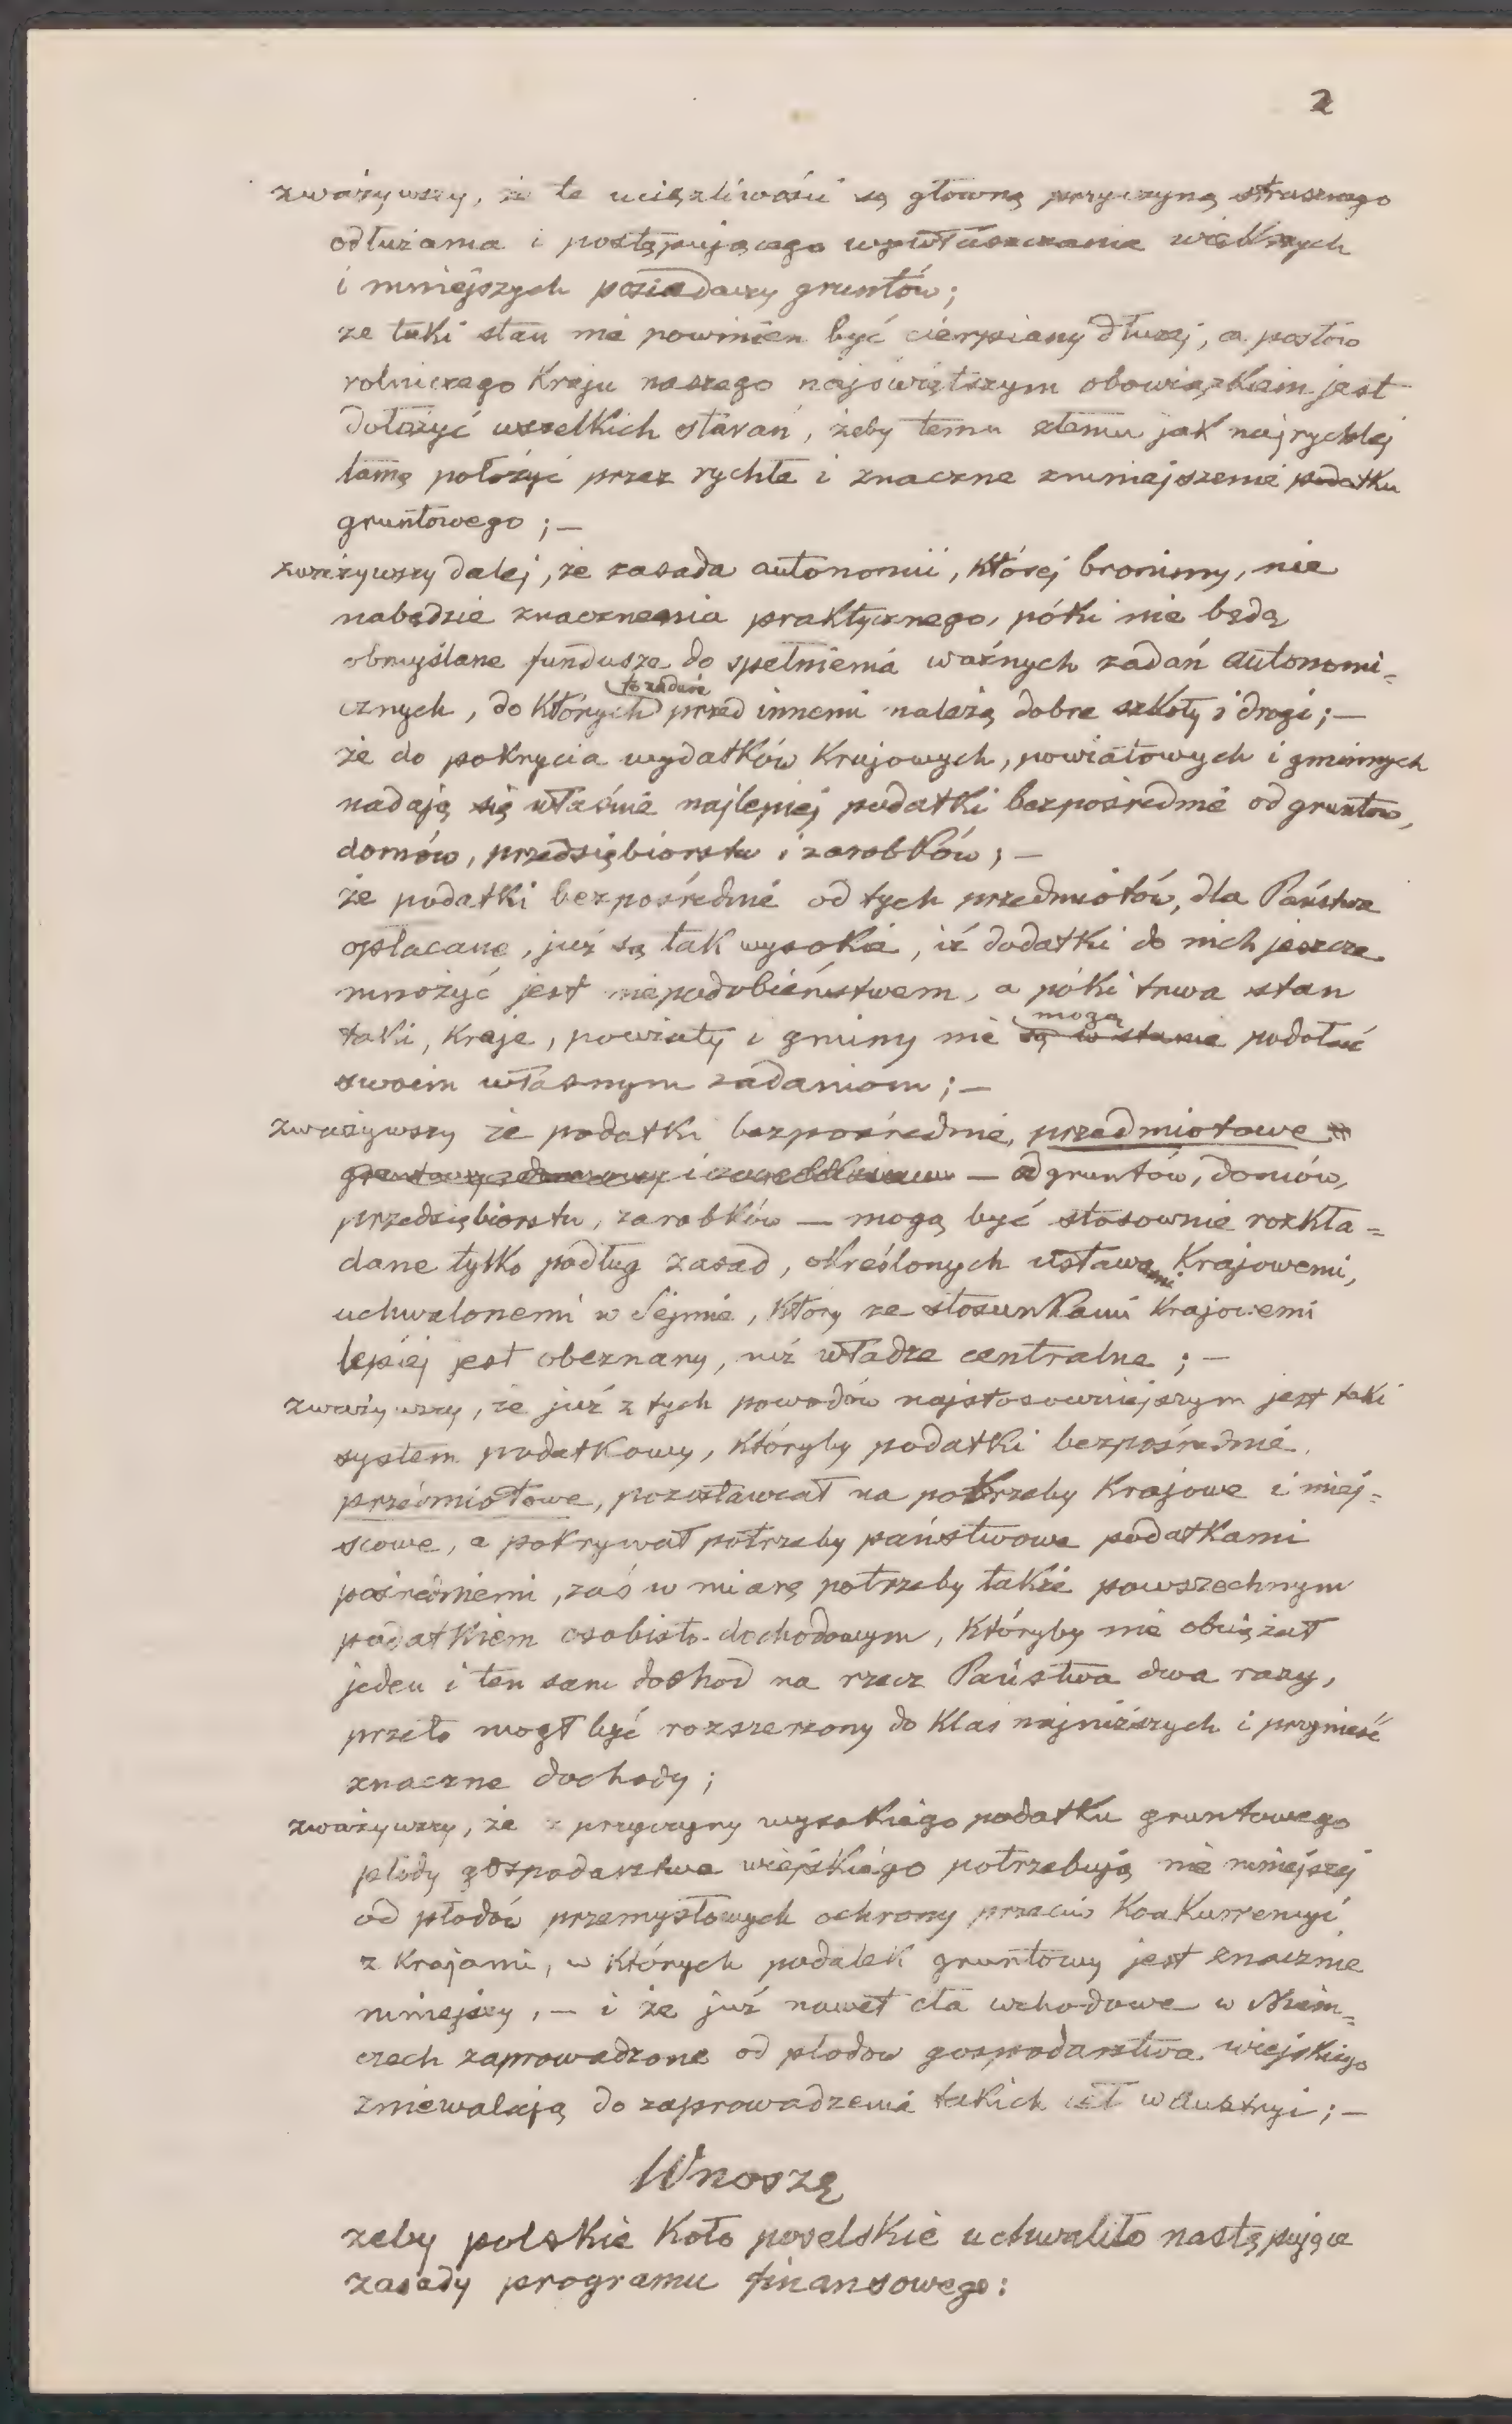 2
zważywszy, że te uciążliwości są główną przyczyną strasznego
odłużania i postępującego wywłaszczania większych
i mniejszych posiadaczy gruntów;
że taki stan nie powinien być cierpiany dłużej, a posłów
rolniczego Kraju naszego najświętszym obowiązkiem jest
dołożyć wszelkich starań, żeby temu złemu jak najrychlej
tamę położyć przez rychłe i znaczne zmniejszenie podatku
gruntowego ; —
zważywszy dalej, że zasada autonomii, której bronimy, nie
nabędzie znaczenia praktycznego, póki nie będą
obmyślane fundusze do spełnienia ważnych zadań autonomi=
cznych, do których przed innemi należą dobre szkoły i drogi; —
że do pokrycia wydatków Krajowych, powiatowych i gminnych
nadają się właśnie najlepiej podatki bezpośrednie od gruntów,
domów, przedsiębiorstw i zarobków; —
że podatki bezpośrednie od tych przedmiotów, dla Państwa
opłacane, już są tak wysokie, iż dodatki do nich jeszcze
mnożyć jest niepodobieństwem, a póki trwa stan
taki, Kraje, powiaty i gminy nie są w stanie mogą podołać
swoim własnym zadaniom ; —
zważywszy że podatki bezpośrednie, przedmiotowe
— od gruntów, domów,
przedsiębiorstw, zarobków — mogą być stosownie rozkła=
dane tylko podług zasad, określonych ustawami Krajowemi,
uchwalonemi w Sejmie, który ze stosunkami Krajowemi
lepiej jest obeznany, niż władze centralne ; —
zważywszy, że już z tych powodów najstosowniejszym jest taki
system podatkowy, któryby podatki bezpośrednie,
przedmiotowe, pozostawiał na potrzeby Krajowe i miej=
scowe, a pokrywał potrzeby państwowe podatkami
pośredniemi, zaś w miarę potrzeby także powszechnym
podatkiem osobisto-dochodowym, któryby nie obciążał
jeden i ten sam dochód na rzecz Państwa dwa razy,
przeto mógł być rozszerzony do klas najniższych i przynieść
znaczne dochody ;
zważywszy, że z przyczyny wysokiego podatku gruntowego
płody gospodarstwa wiejskiego potrzebują nie mniejszej
od płodów przemysłowych ochrony przeciw Konkurrencyi
z Krajami, w których podatek gruntowy jest znacznie
mniejszy, — i że już nawet cła wchodowe w Niem=
czech zaprowadzone od płodów gospodarstwa wiejskiego
zniewalają do zaprowadzenia takich ceł w Austryi ; —
Wnoszę
żeby polskie Koło poselskie uchwaliło następujące
zasady programu finansowego :